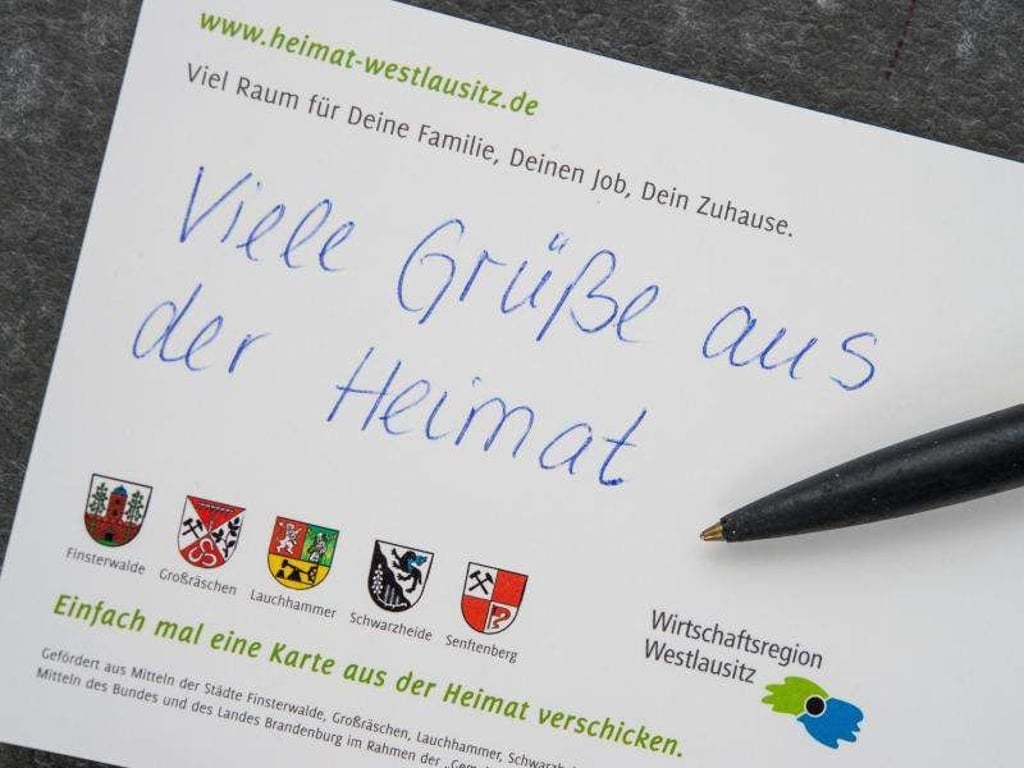 www.heimat-westlausitz.de
Viel Raum für Deine Familie, Deinen Job, Dein Zuhause.
Viele Grüße aus
der Heimat
Finsterwalde
Großräschen
Lauchhammer
Schwarzheide
Senftenberg
Wirtschaftsregion
Westlausitz
Einfach mal eine Karte aus der Heimat verschicken.
Gefördert aus Mitteln der Städte Finsterwalde, Großräschen, Lauchhammer,
Mitteln des Bundes und des Landes Brandenburg im Rahmen der